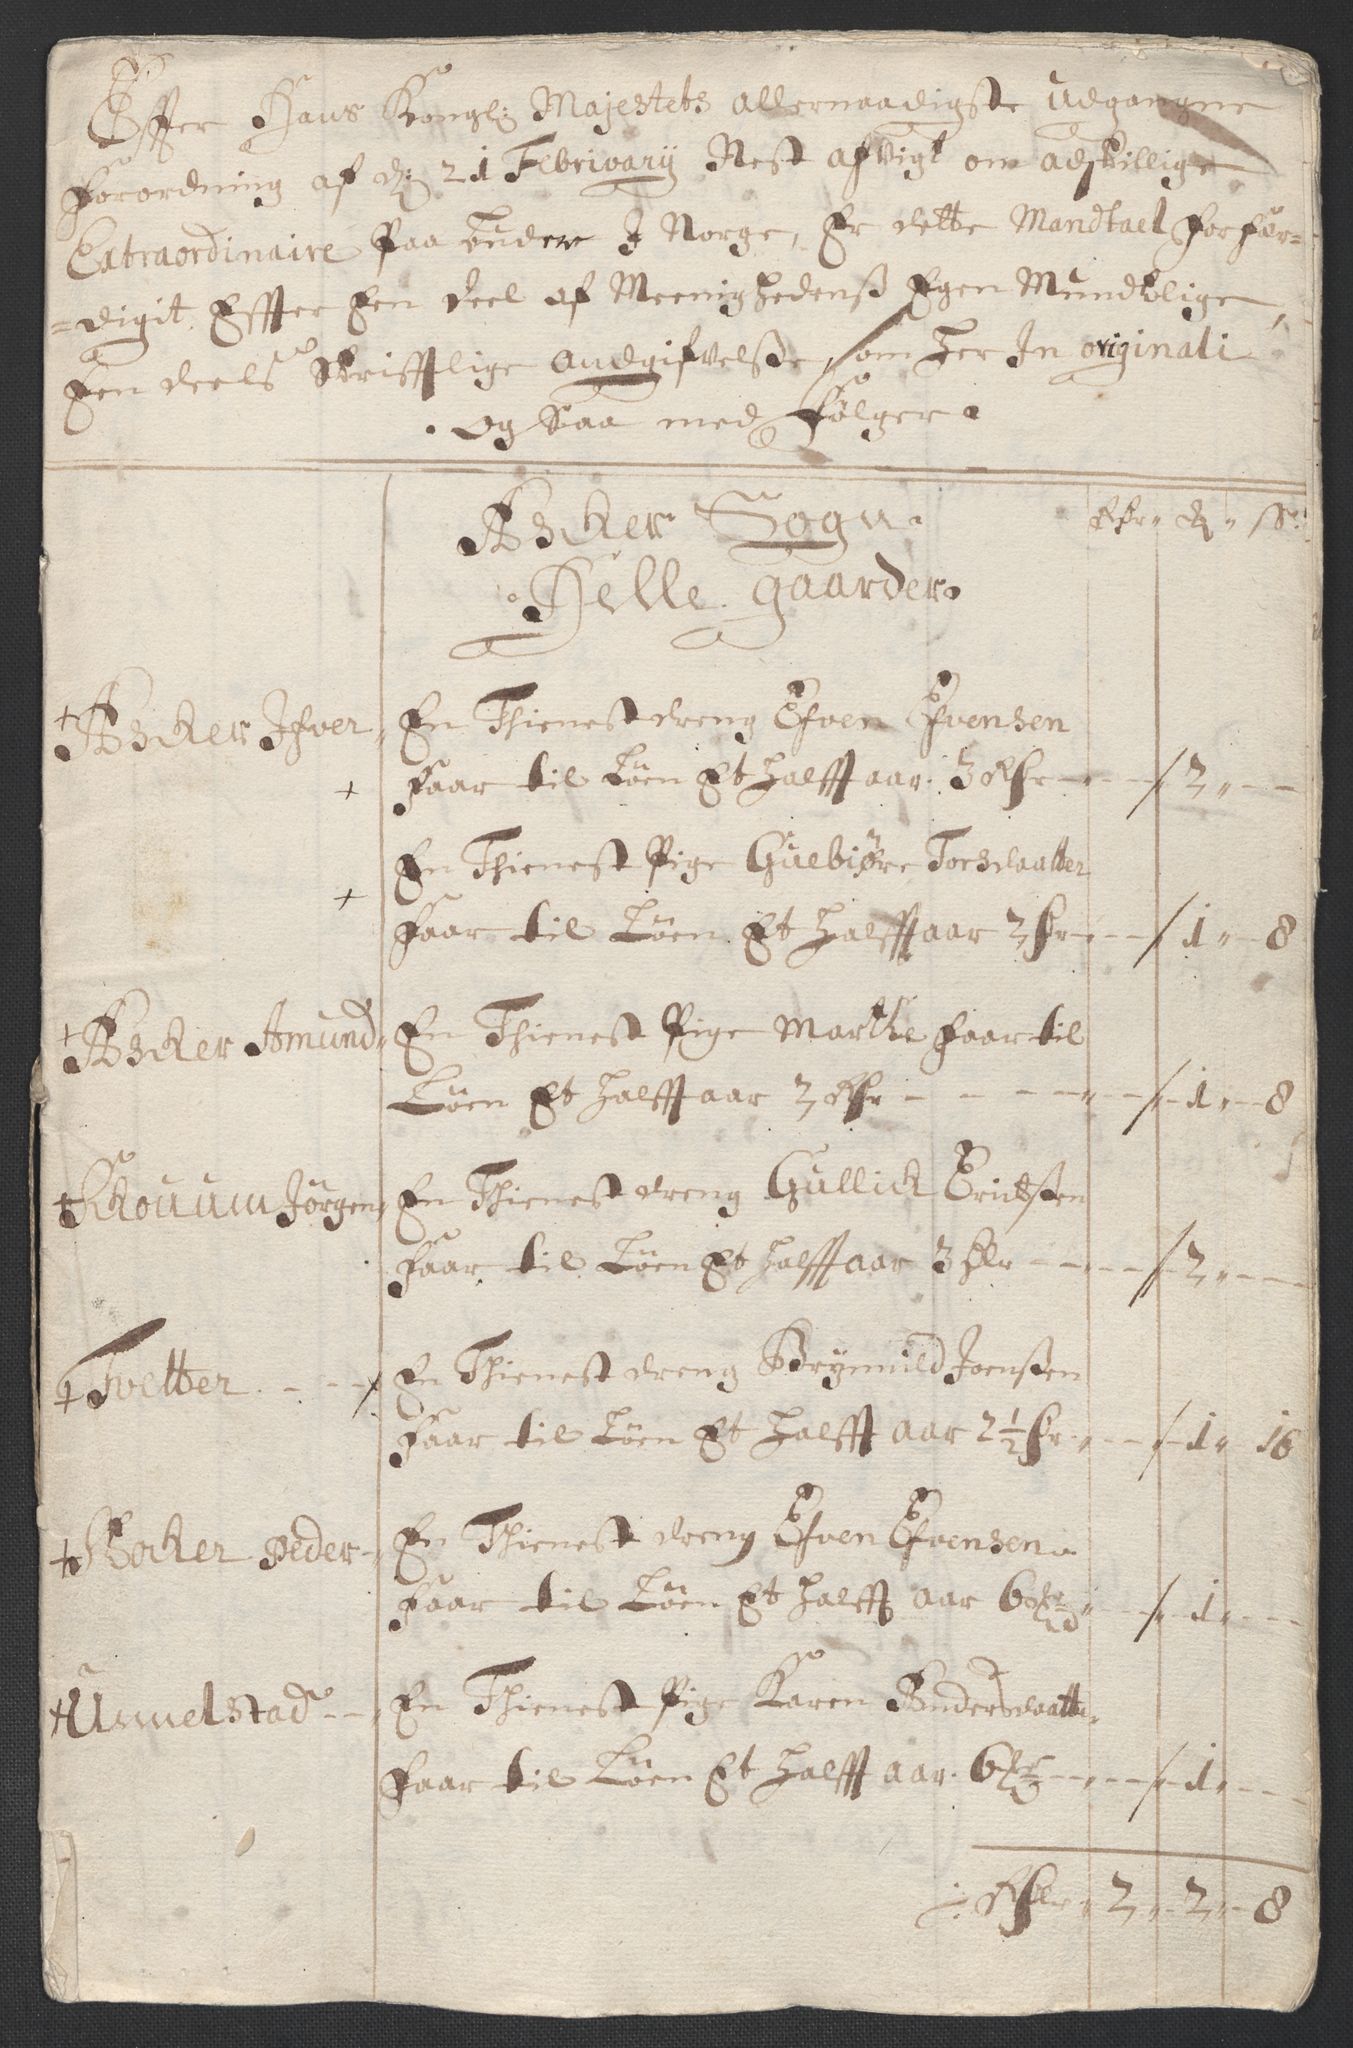 Effter Hans Kongl: Majestets allernaadigste udgangne
forordning af d: 21 Februarij Nest afvigt om adskillige
Extraordinaire Paa buder I Norge, Er dette Mandtael forfær=
=digit Effter Een deel af Meenighedenß Egen Mundtlige,
Een deels Skrifftlige Andgifvelße, som her In originali
og saa med følger.
Asker Sogn.
Helle gaarder.
Rdr d s:
+ Asker Ifver En Thienest dreng Efven Efvensen
+ Faar til Løen Et halfft aar. 3 Rdr / 2
En Thienest Pige Guebiøre Torsdaatter
+ Faar til Løen Et halfft aar 2 dr / 1 8
+ Asker Amund En Thienest Pige Marthe faar til
Løen Et halfft aar 2 Rdr / 1 8
+ Skouum Jørgen En Thienest dreng Gullick Erichsen
Faar til Løen Et halfft aar 3 dlr / 2
+ Tvetter En Thienest dreng Brynnild Joensen
Faar til Løen Et halfft aar 2 1/2 dr / 1 16
+ Bocker Peder En Thienest dreng Efven Efvensen
Faar til Løen Et halfft aar 6 / 1
+ Unnelstad En Thienest Pige Karen Andersdaatter
Faar til Løen Et halfft aar. 6 / 1
Rdlr 2 2 8